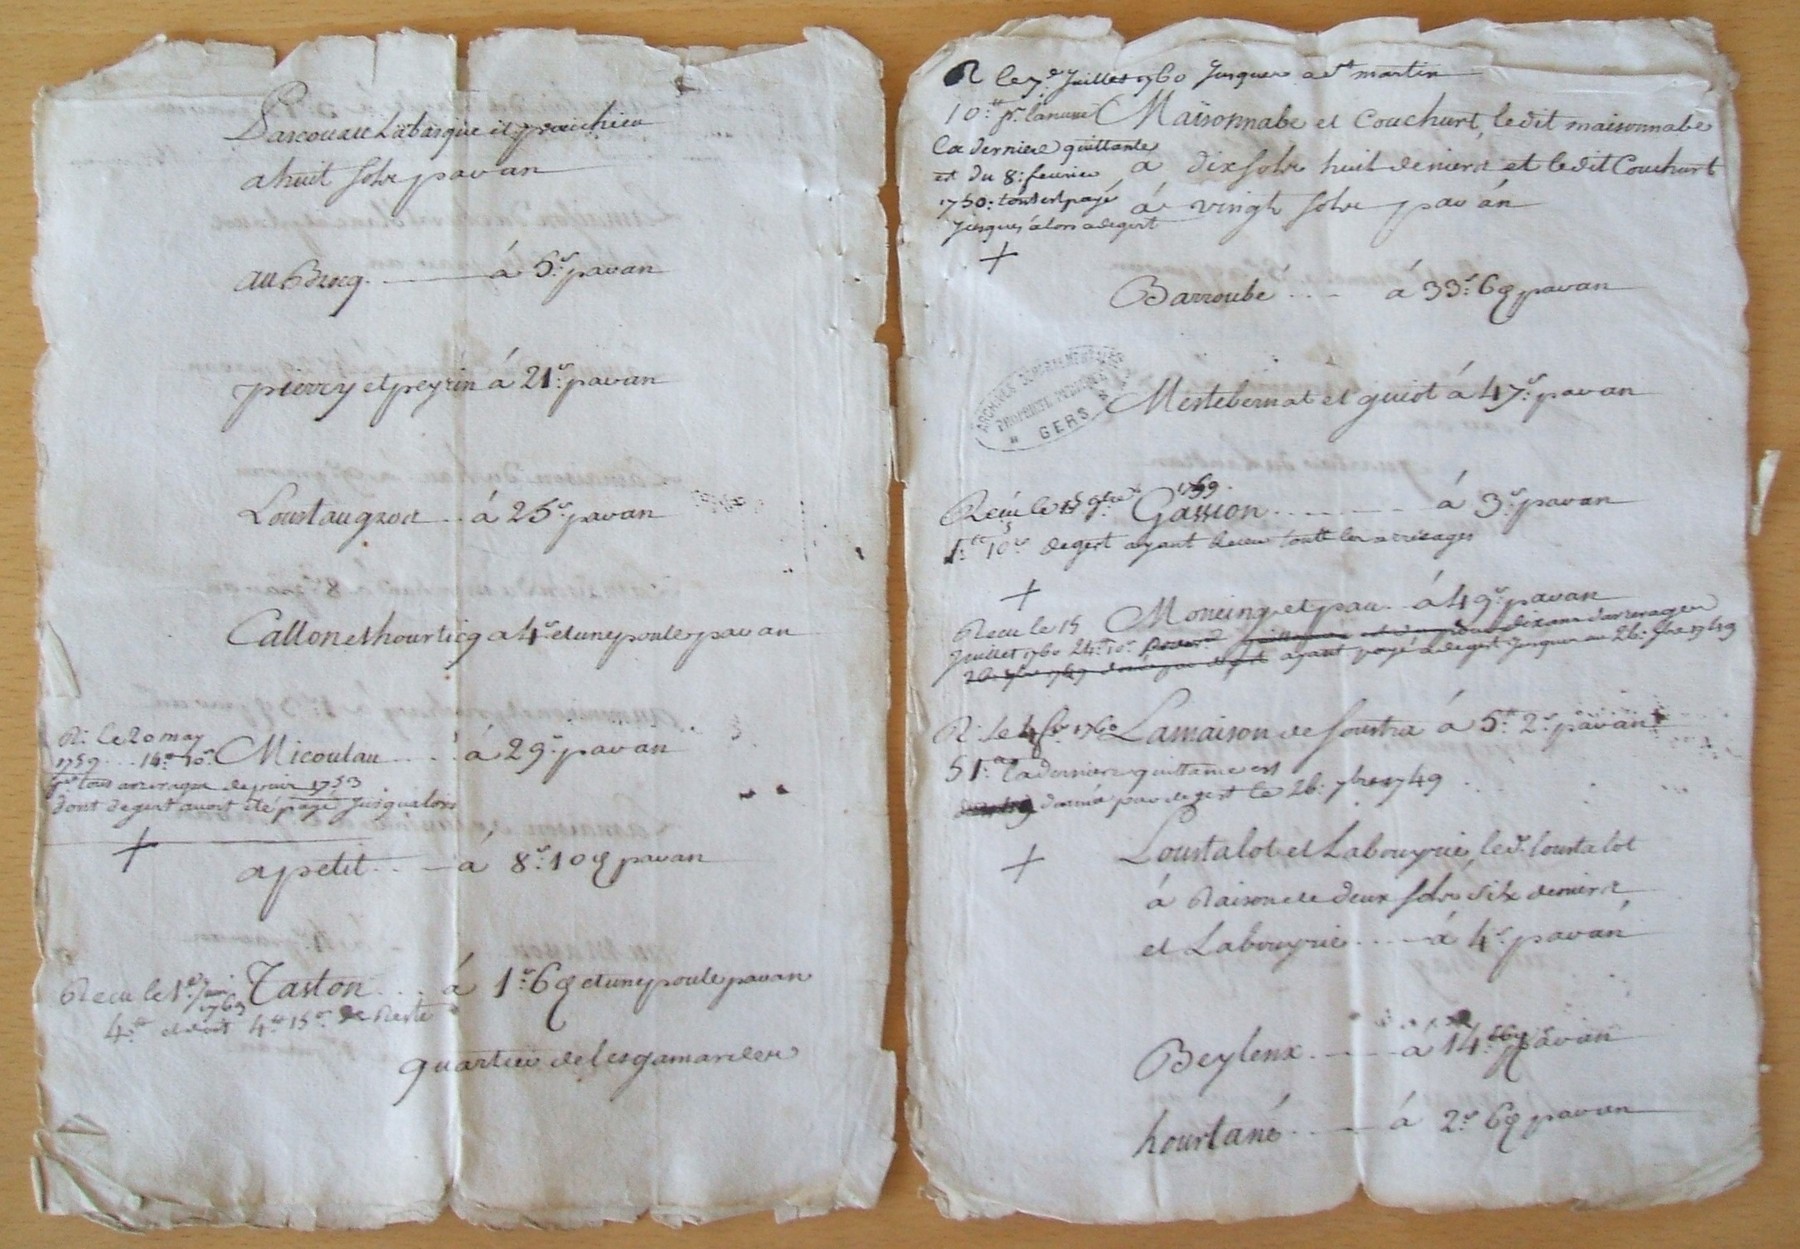 Labarque et
a huit sols par an
au Brocq. à 5s par an
pierry et peyrin à 21s par an
Loustaugros .. à 25s par an
Callon et hourticq a 4s et une poule par an
R: le 20 may
1759 ... 14tt 10s Micoulau .... à 29s par an
tous arrerages depuis 1753
dont degert avoit été payé jusqualors
+
apetit .. à 8s 10d par an
Recu le 1er juin 1763 Taston .... à 1s 6d et une poule par an
4tt et doit 4tt 15s de Reste
quartier de lesgamardes
R le 7e Juillet 1760 jusques a St martin
10tt Maisonnabe et Couchurt, ledit maisonnabe
La derniere quittance
est du 8: fevrier a dix sols huit deniers et ledit Couchurt
1750: tout est payé à vingt sols par an
jusqu'alors a degert
+
Barroubé .... à 33s 6d par an
ARCHIVES DÉPARTEMENTALES
PROPRIÉTÉ PUBLIQUE
GERS
Mestebernat et guiot à 47s par an
1759
Recu le 15 9bre Gassion ........ à 3s par an
degert ayant receu tous les arrerages
+
Moncinq et pau .. à 49s par an
Recu le 15
juillet 1760 24tt 10s ayant payé a degert jusques au 26: 7bre 1749
R: le 4 1760 Lamaison de soustra à 5tt 2s par an
51tt La derniere quittance est
donnée par degert le 26: 7bre 1749
+
Loustalot et Labouyrie, led. Loustalot
à Raison de deux sols six deniers
et Labouyrie .... à 4s par an
Beylenx ..... à 14s par an
hourtané ..... à 2s 6d par an